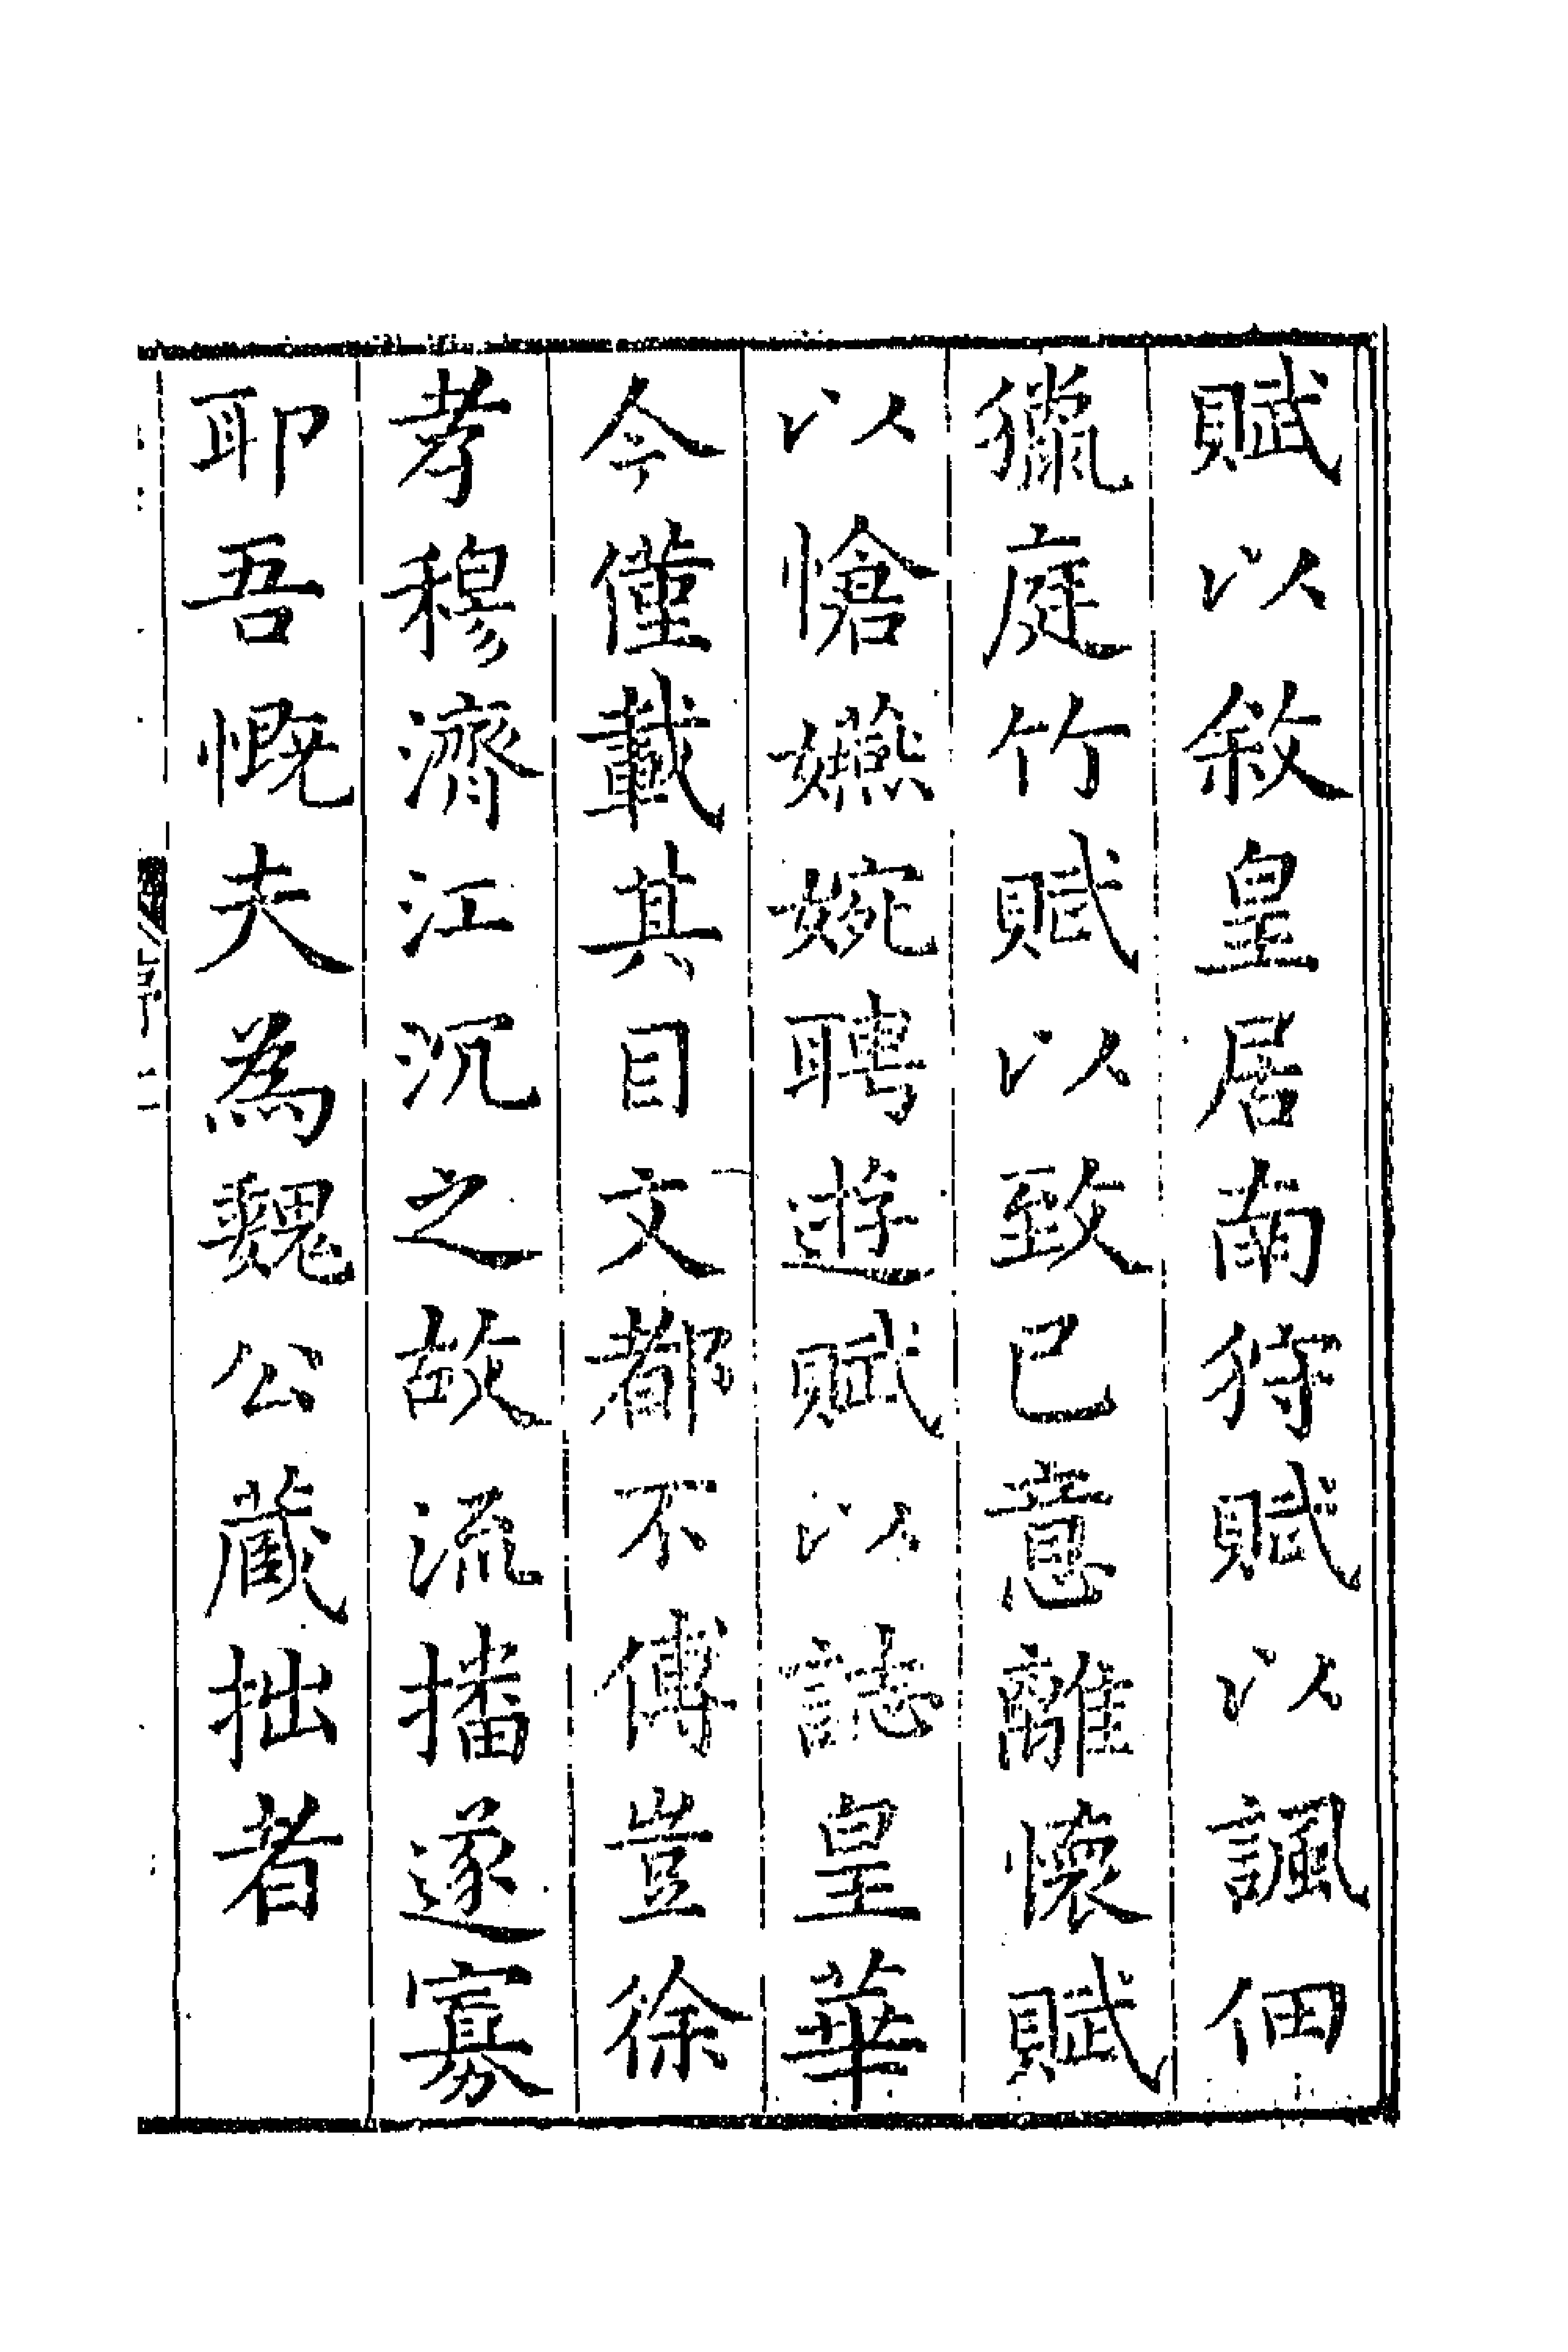 賦以敘皇居南狩賦以諷佃
獵庭竹賦以致已意離懷賦
以愴嬿婉聘遊賦以誌皇華
今僅載其目文都不傳豈徐
孝穆濟江沉之故流播遂寡
耶吾慨夫為魏公蔵拙者
序 二